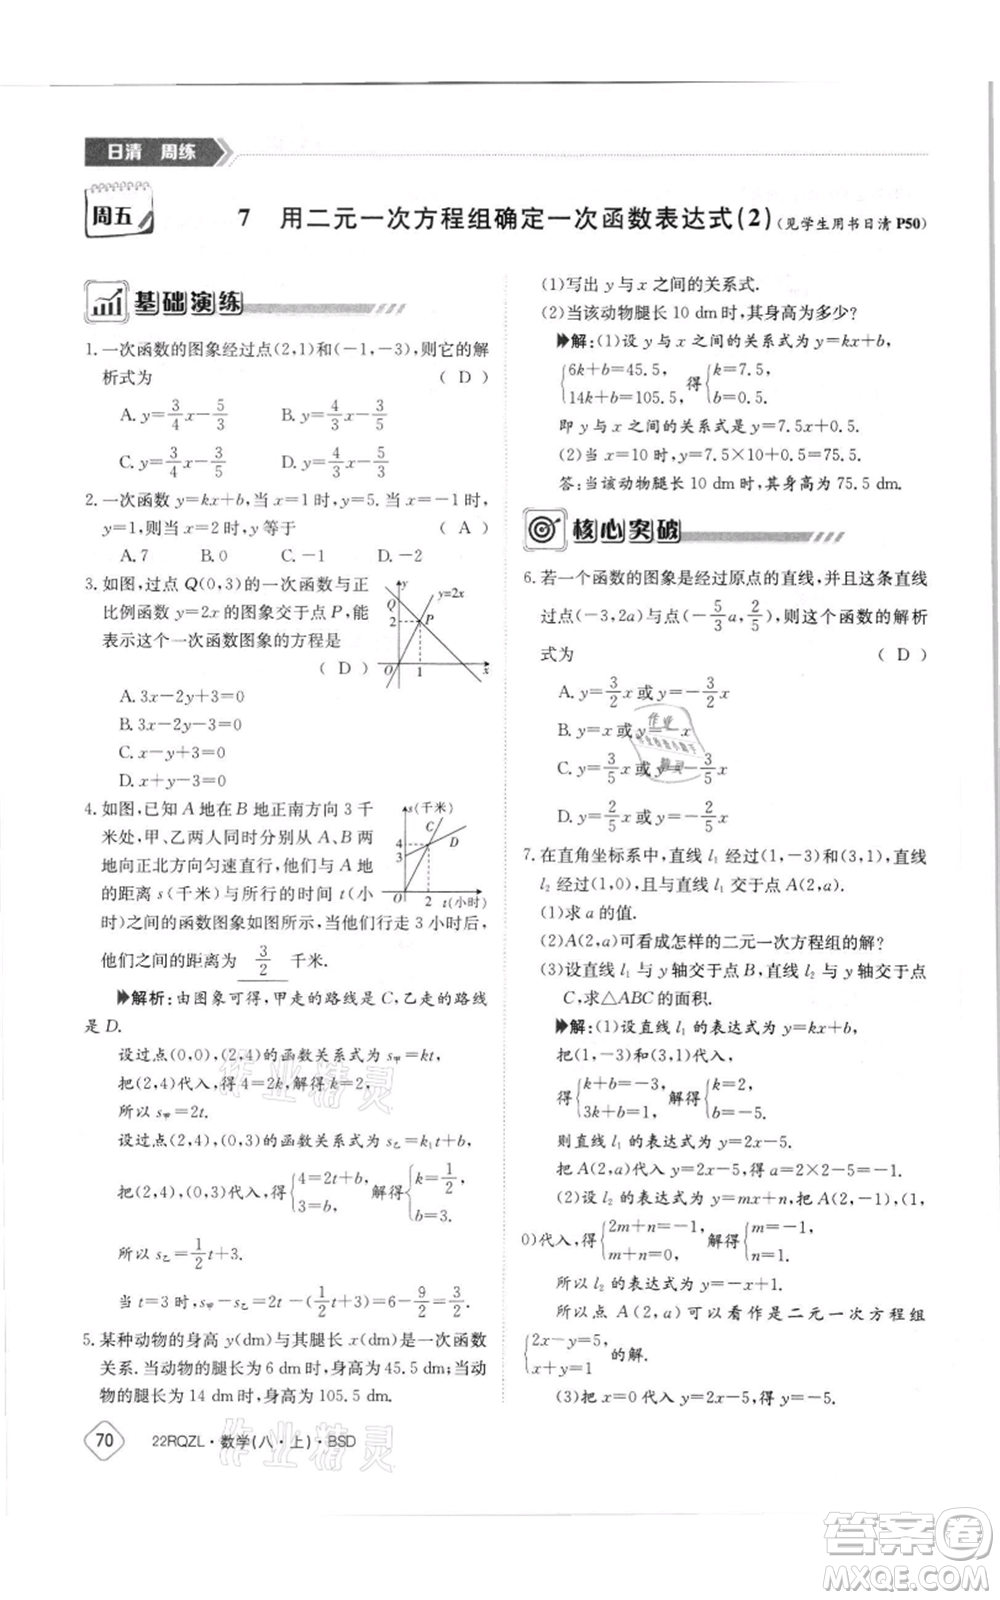 日清 周练
周五
7 用二元一次方程组确定一次函数表达式(2)(见学生用书日清 P50)
基础演练
1. 一次函数的图象经过点(2,1)和(-1,-3),则它的解
析式为 ( D )
A. y=3/4x-5/3 B. y=4/3x-3/5
C. y=3/4x-3/5 D. y=4/3x-5/3
2. 一次函数 y=kx+b,当 x=1时,y=5.当x=-1时,
y=1,则当 x=2 时,y等于 ( A )
A. 7 B. 0 C. -1 D. -2
3. 如图,过点 Q(0,3)的一次函数与正
比例函数 y=2x 的图象交于点 P,能
表示这个一次函数图象的方程是
( D )
A. 3x-2y+3=0
B. 3x-2y-3=0
C. x-y+3=0
D. x+y-3=0
y
y=2x
Q
2
P
O
1
x
4. 如图,已知 A 地在 B 地正南方向 3 千
米处,甲、乙两人同时分别从 A、B 两
地向正北方向匀速直行,他们与 A 地
的距离 s(千米)与所行的时间 t(小
时)之间的函数图象如图所示,当他们行走 3 小时后,
他们之间的距离为 3/2 千米.
s(千米)
C
4
D
3
O
2
t(小时)
解析:由图象可得,甲走的路线是 C,乙走的路线
是 D.
设过点(0,0),(2,4)的函数关系式为 s甲=kt,
把(2,4)代入,得 4=2k,解得 k=2,
所以 s甲=2t.
设过点(2,4),(0,3)的函数关系式为 s乙=k1t+b,
把(2,4),(0,3)代入,得{4=2k+b, 3=b, 解得{k=1/2, b=3.
所以 s乙=1/2t+3.
当 t=3 时,s甲-s乙=2t-(1/2t+3)=6-9/2=3/2.
5. 某种动物的身高 y(dm)与其腿长 x(dm)是一次函数
关系.当动物的腿长为 6 dm时,身高为 45.5 dm;当动
物的腿长为 14 dm 时,身高为 105.5 dm.
(1)写出 y 与 x 之间的关系式.
(2)当该动物腿长 10 dm时,其身高为多少?
解:(1)设 y 与 x 之间的关系式为 y=kx+b,
{6k+b=45.5, 14k+b=105.5. 得{k=7.5, b=0.5.
即 y 与 x 之间的关系式是 y=7.5x+0.5.
(2)当 x=10 时,y=7.5×10+0.5=75.5.
答:当该动物腿长 10 dm时,其身高为 75.5 dm.
核心突破
6. 若一个函数的图象是经过原点的直线,并且这条直线
过点(-3,2a)与点(-5/3a,2/5),则这个函数的解析
式为 ( D )
A. y=3/2x或y=-3/2x
B. y=x或y=-x
C. y=3/5x或y=-3/5x
D. y=2/5x或y=-2/5x
7. 在直角坐标系中,直线 l1 经过(1,-3)和(3,1),直线
l2 经过(1,0),且与直线 l1 交于点 A(2,a).
(1)求 a 的值.
(2)A(2,a)可看成怎样的二元一次方程组的解?
(3)设直线 l1 与 y 轴交于点 B,直线 l2 与 y 轴交于点
C,求△ABC 的面积.
解:(1)设直线 l1 的表达式为 y=kx+b,
把(1,-3),(3,1)代入,
得{k+b=-3, 3k+b=1, 解得{k=2, b=-5.
则直线 l1 的表达式为 y=2x-5.
把 A(2,a)代入 y=2x-5,得 a=2×2-5=-1.
(2)设 l2 的表达式为 y=mx+n,把 A(2,-1),(1,
0)代入,得{2m+n=-1, m+n=0, 解得{m=-1, n=1.
所以 l2 的表达式为 y=-x+1.
所以点 A(2,a)可以看作是二元一次方程组
{2x-y=5, x+y=1 的解.
(3)把 x=0代入 y=2x-5,得 y=-5.
70 22RQZL·数学(八·上)·BSD
作业精灵
作业精灵
答案卷
MXQE.COM